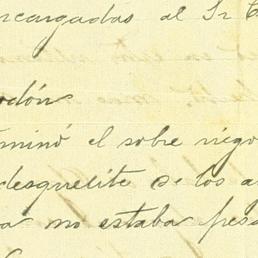 ncargadas al Sr C
odón
minó el sobre vigo
desquelite de los a
a no estaba pesa